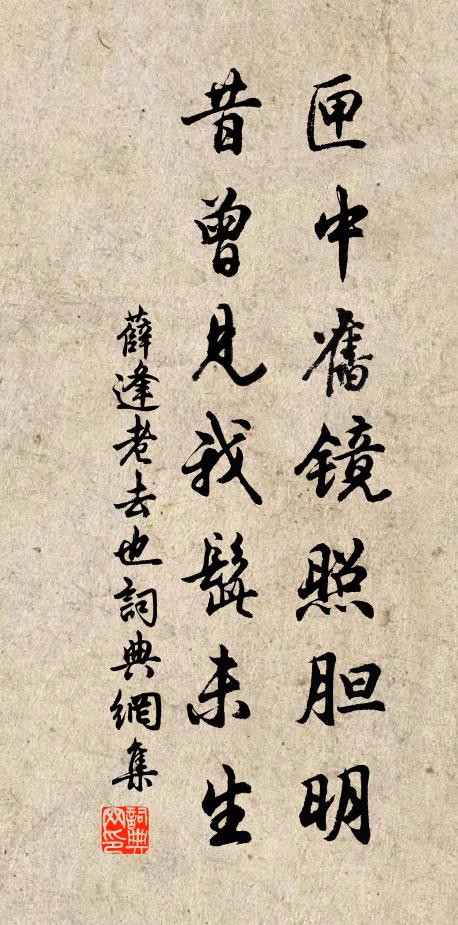 匣中舊镜照胆明
昔曾見我髭未生
薛逢老去也詞典網集
詞典网印